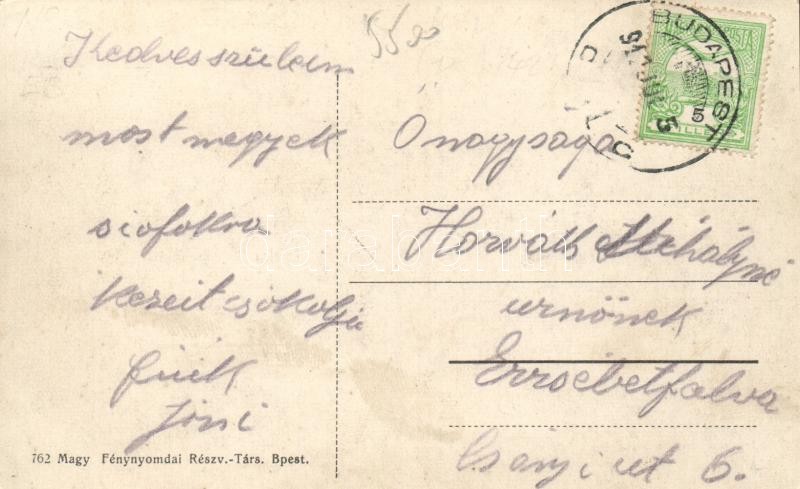 Kedves szüleim
most megyek
siofokra
kezeit csokolja
fiuk
Jóni
762 Magy Fénynyomdai Részv.-Társ. Bpest.
5500
BUDAPEST
5
Ő nagysága
Horváth Mihályné
urnönek
Erzsebetfalva
Csanyi ut 6.
darabanth